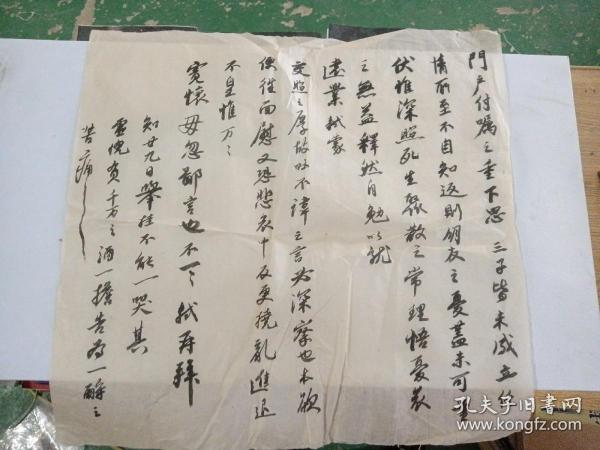 門戶付囑之重下思三子皆未成立任
情所至不自知返則朋友之憂蓋未可量
伏惟深照死生聚散之常理悟憂哀
之無益釋然自勉以就
遠業軾蒙
交照之厚故吐不諱之言必深察也本欲
便往面慰又恐悲哀中反更撓亂進退
不皇惟万々
寬懷毋忽鄙言也不一々軾再拜
知廿九日舉挂不能一哭其
靈愧負千万々酒一擔告為一酹之
苦痛
孔夫子旧书网
www.kongfz.com